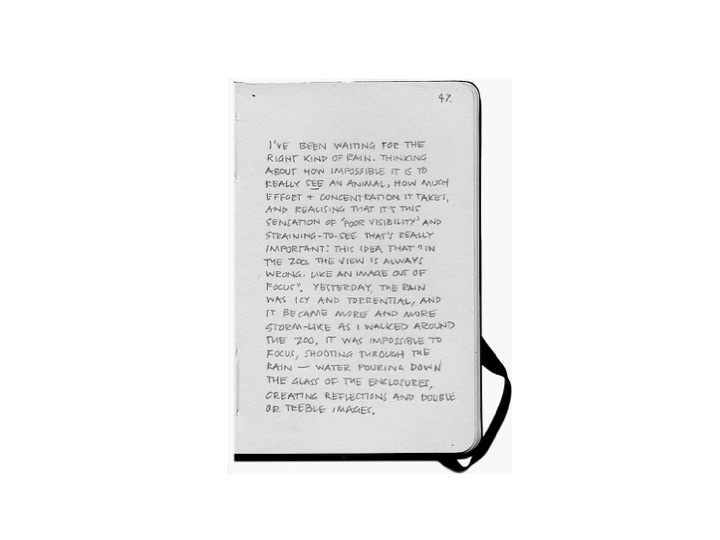 47.
I'VE BEEN WAITING FOR THE
RIGHT KIND OF RAIN. THINKING
ABOUT HOW IMPOSSIBLE IT IS TO
REALLY SEE AN ANIMAL, HOW MUCH
EFFORT + CONCENTRATION IT TAKES,
AND REALISING THAT IT'S THIS
SENSATION OF 'POOR VISIBILITY' AND
STRAINING-TO-SEE THAT'S REALLY
IMPORTANT: THIS IDEA THAT "IN
THE ZOO, THE VIEW IS ALWAYS
WRONG, LIKE AN IMAGE OUT OF
FOCUS". YESTERDAY, THE RAIN
WAS ICY AND TORRENTIAL, AND
IT BECAME MORE AND MORE
STORM-LIKE AS I WALKED AROUND
THE ZOO. IT WAS IMPOSSIBLE TO
FOCUS, SHOOTING THROUGH THE
RAIN — WATER POURING DOWN
THE GLASS OF THE ENCLOSURES,
CREATING REFLECTIONS AND DOUBLE
OR TREBLE IMAGES.